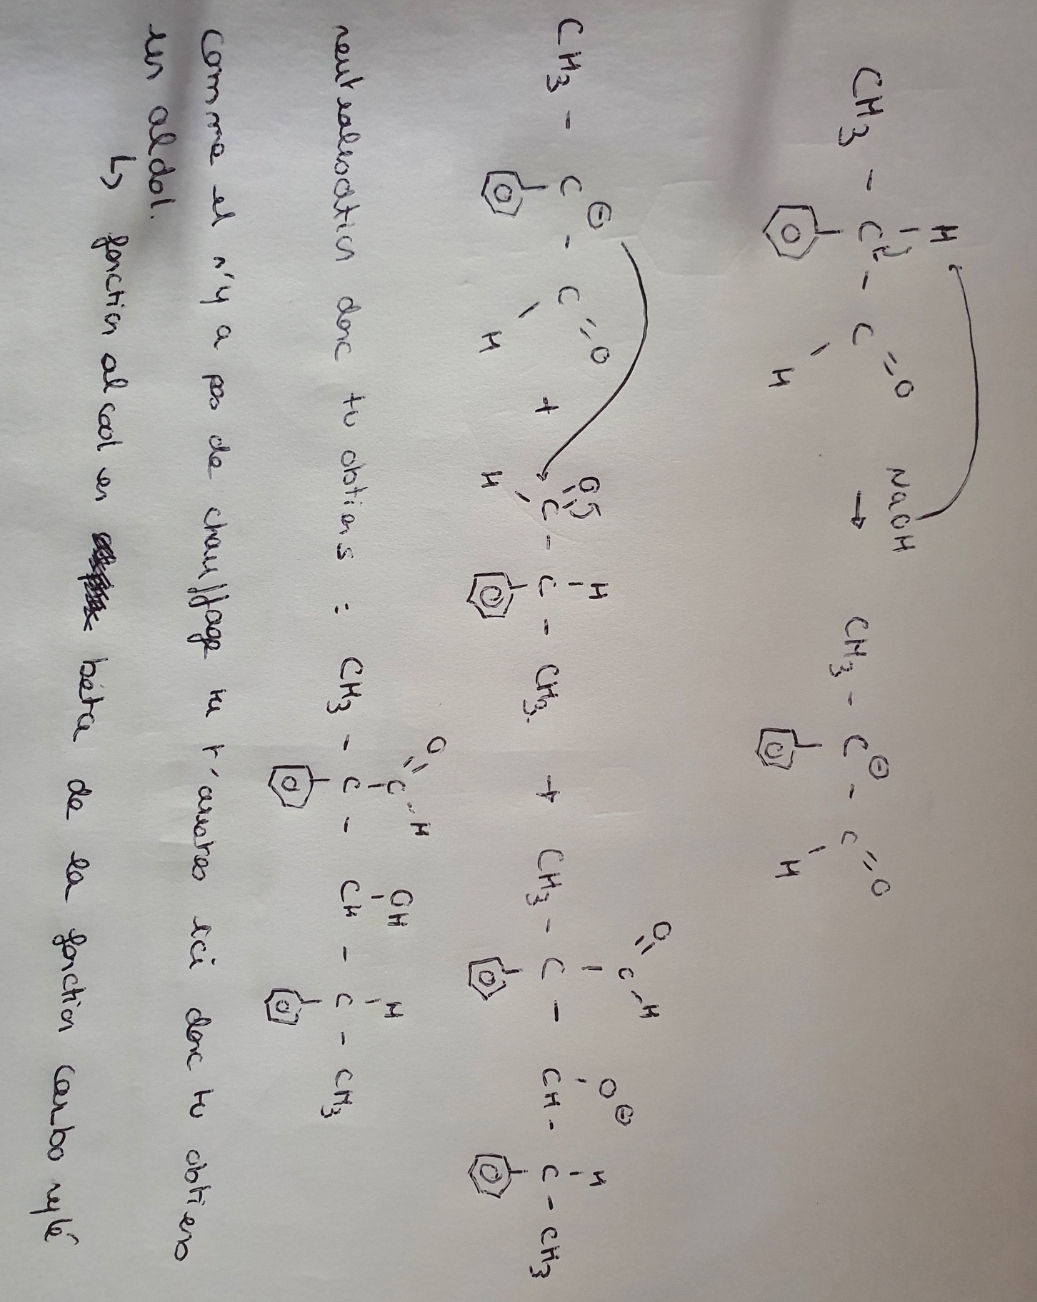 H
CH3 - C - C = O NaOH → CH3 - C ⊖ - C = O
H H
CH3 - C ⊖ - C = O + O = C - C - CH3 → CH3 - C - CH - C - CH3
H H H O = C - H O ⊖ H
neutralisation donc tu obtiens : CH3 - C - CH - C - CH3
O = C - H OH H
comme il n'y a pas de chauffage tu t'arretes ici donc tu obtiens
un aldol.
↳ fonction alcool en beta de la fonction carbonylé